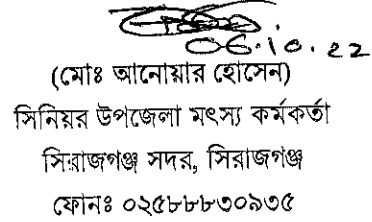 06.10.22
(মোঃ আনোয়ার হোসেন)
সিনিয়র উপজেলা মৎস্য কর্মকর্তা
সিরাজগঞ্জ সদর, সিরাজগঞ্জ
ফোনঃ ০২৫৮৮৮৩০৯৩৫